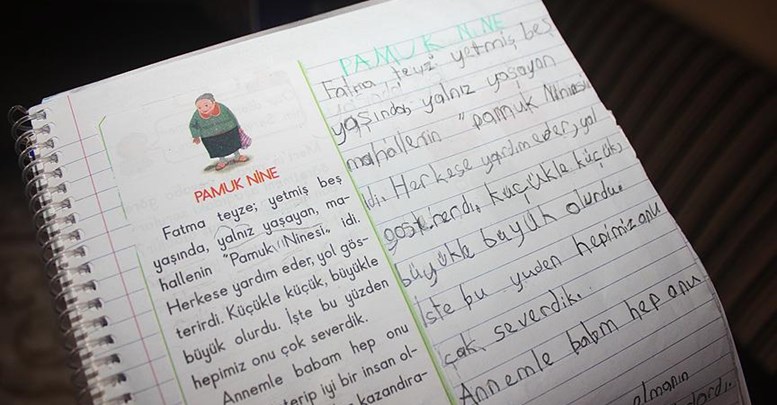 PAMUK NİNE
Fatma teyze; yetmiş beş
yaşında, yalnız yaşayan, ma-
hallenin "Pamuk Ninesi" idi.
Herkese yardım eder, yol gös-
terirdi. Küçükle küçük, büyükle
büyük olurdu. İşte bu yüzden
hepimiz onu çok severdik.
Annemle babam hep onu
terip iyi bir insan ol-
kazandıra-
PAMUK NİNE
Fatma teyze yetmiş beş
yaşında, yalnız yaşayan
mahallenin "pamuk Ninesi
idi. Herkese yardım eder, yol
gösterirdi, küçükle küçük,
büyükle büyük olurdu.
İste bu yuden hepimiz onu
çak severdik.
Annemle babm hep onu
olmanın